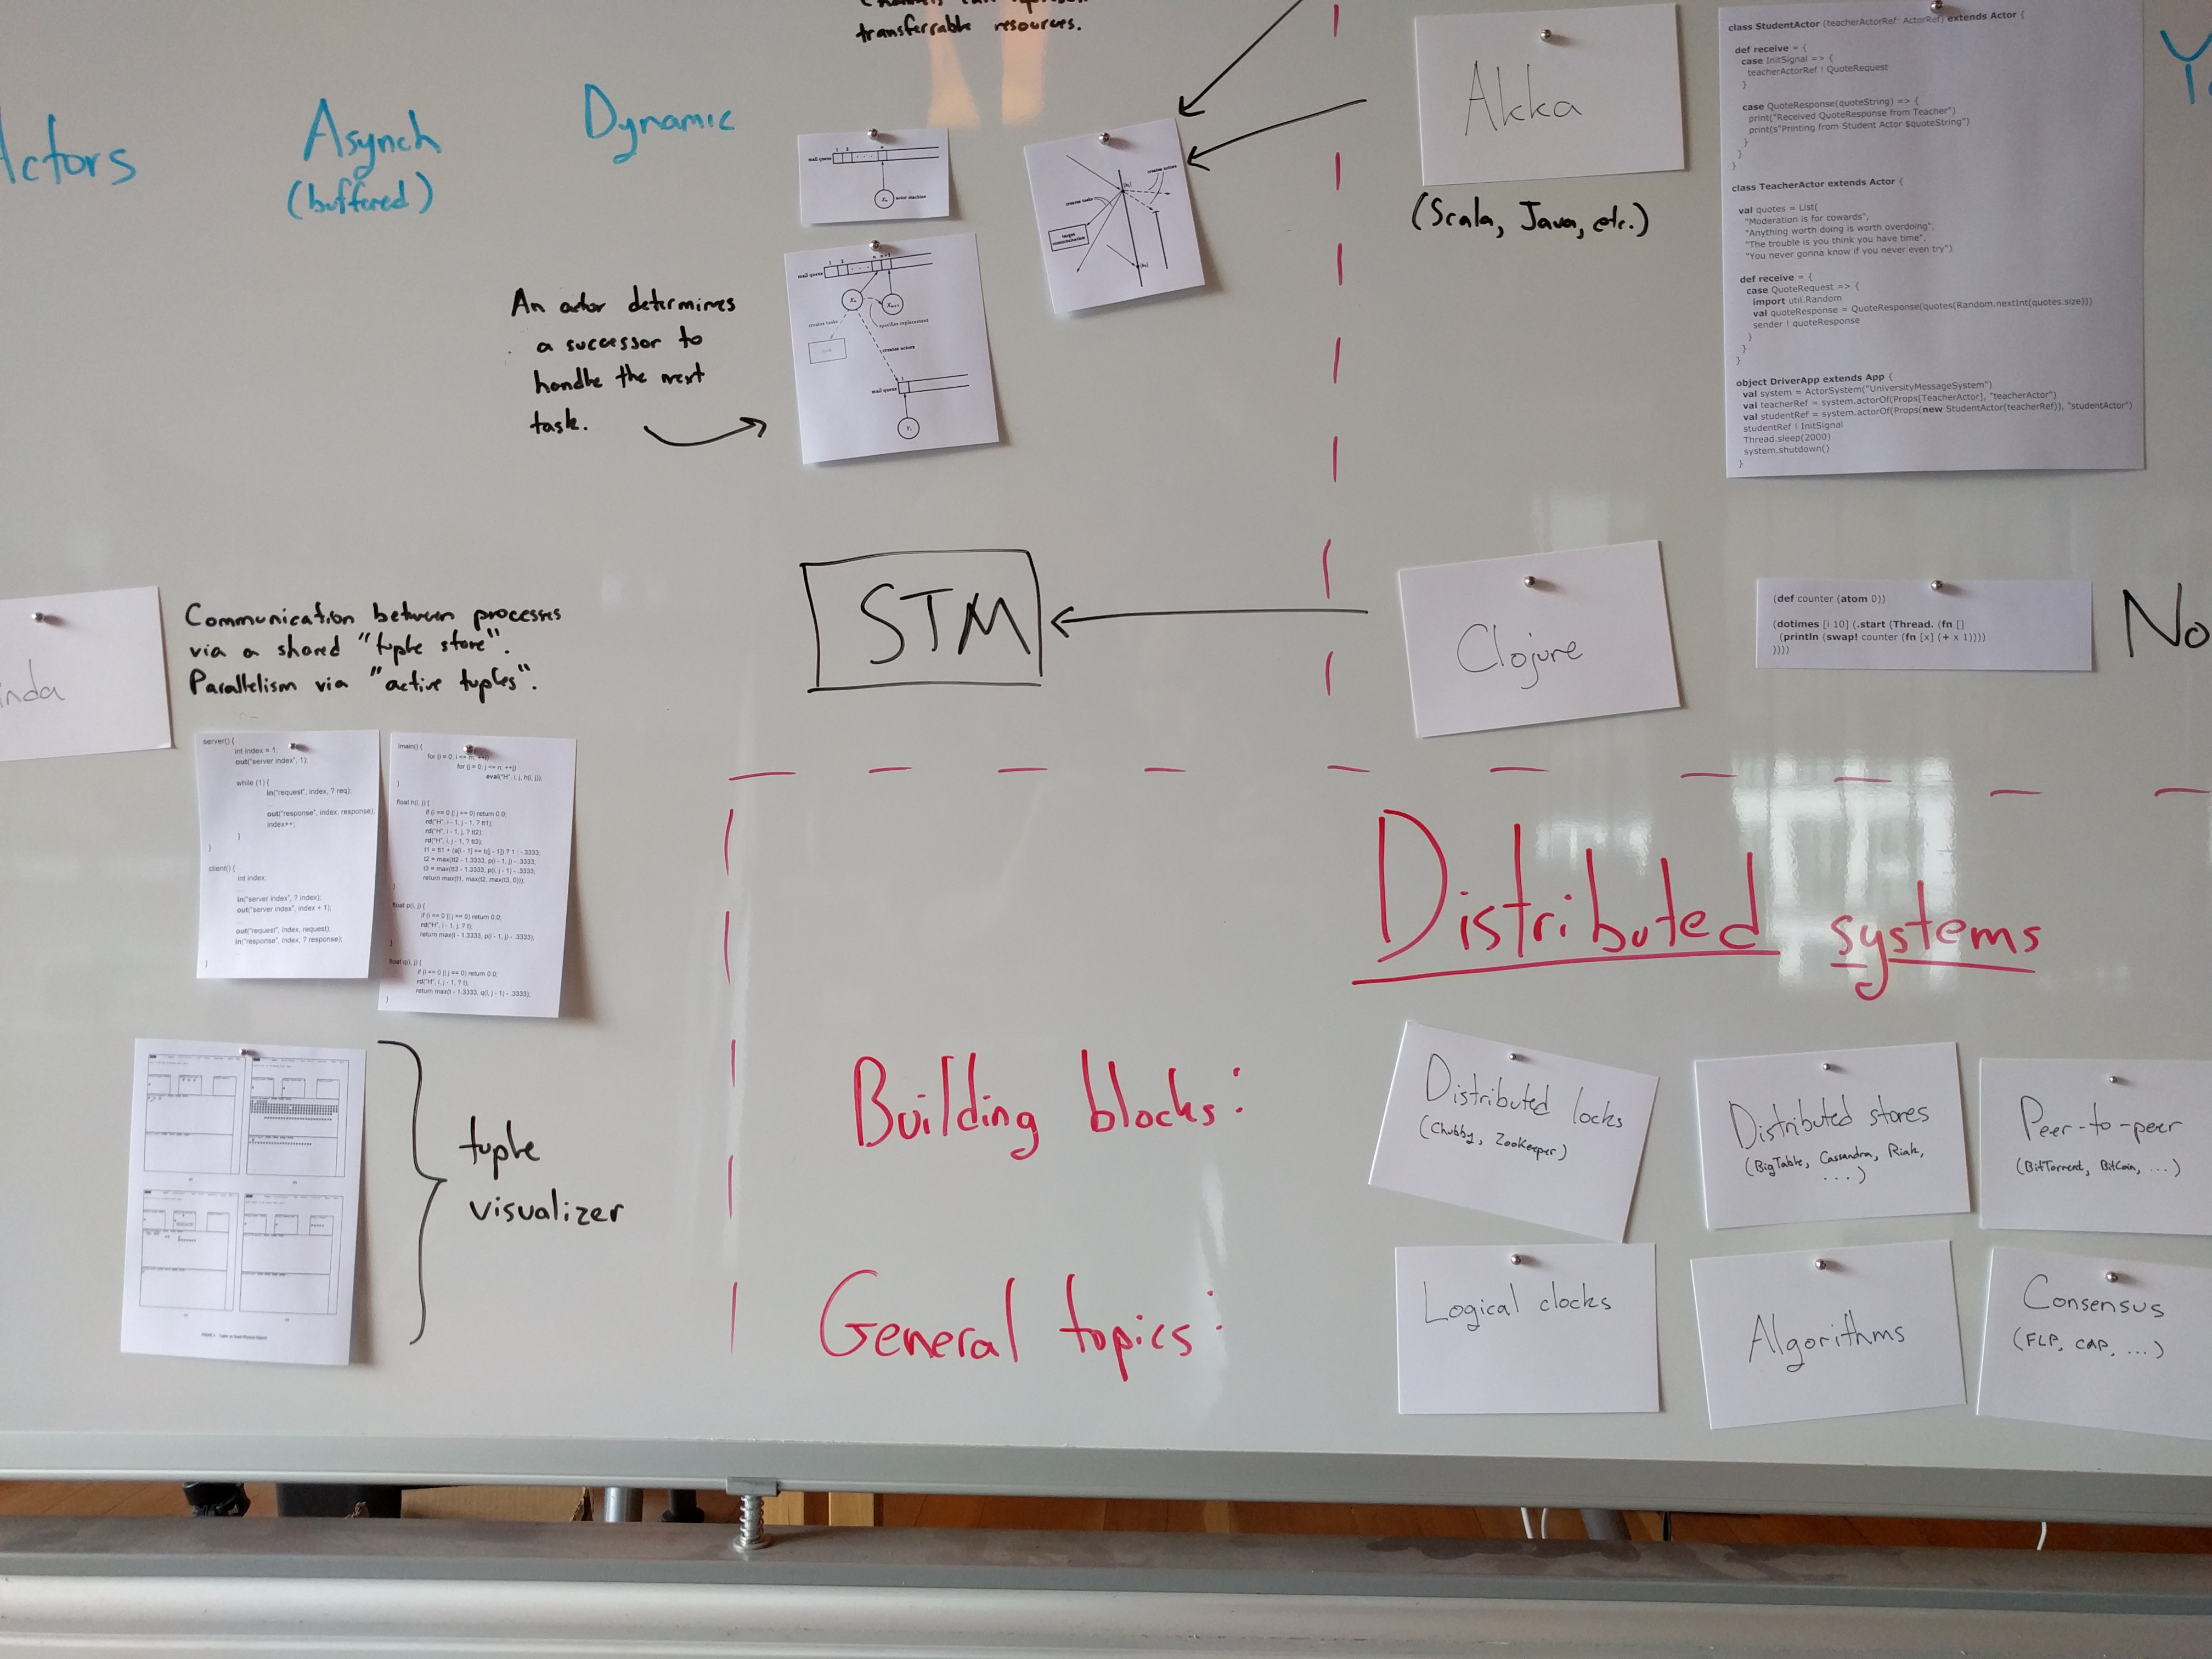 transferrable resources.
Actors
Asynch
(buffered)
Dynamic
mail queue
1 2 n
actor machine
An actor determines
a successor to
handle the next
task.
mail queue
1 2 n n+1
creates tasks
specifies replacement
creates actors
mail queue
1
creates tasks
Akka
(Scala, Java, etc.)
class StudentActor (teacherActorRef: ActorRef) extends Actor {
def receive = {
case InitSignal => {
teacherActorRef ! QuoteRequest
}
case QuoteResponse(quoteString) => {
print("Received QuoteResponse from Teacher")
print(s"Printing from Student Actor $quoteString")
}
}
}
class TeacherActor extends Actor {
val quotes = List(
"Moderation is for cowards",
"Anything worth doing is worth overdoing",
"The trouble is you think you have time",
"You never gonna know if you never even try")
def receive = {
case QuoteRequest => {
import util.Random
val quoteResponse = QuoteResponse(quotes(Random.nextInt(quotes.size)))
sender ! quoteResponse
}
}
}
object DriverApp extends App {
val system = ActorSystem("UniversityMessageSystem")
val teacherRef = system.actorOf(Props[TeacherActor], "teacherActor")
val studentRef = system.actorOf(Props(new StudentActor(teacherRef)), "studentActor")
studentRef ! InitSignal
Thread.sleep(2000)
system.shutdown()
}
STM
Clojure
(def counter (atom 0))
(dotimes [i 10] (.start (Thread. (fn []
(println (swap! counter (fn [x] (+ x 1))))
))))
No
inda
Communication between processes
via a shared "tuple store".
Parallelism via "active tuples".
server() {
int index = 1;
out("server index", 1);
while (1) {
in("request", index, ? req);
...
out("response", index, response);
index++;
}
}
client() {
int index;
...
in("server index", ? index);
out("server index", index + 1);
...
out("request", index, request);
in("response", index, ? response);
...
}
lmain() {
for (i = 0; i <= m; ++i)
for (j = 0; j <= n; ++j)
eval("H", i, j, h(i, j));
}
float h(i, j) {
if (i == 0 || j == 0) return 0.0;
rd("H", i - 1, j - 1, ? tt1);
rd("H", i - 1, j, ? tt2);
rd("H", i, j - 1, ? tt3);
t1 = tt1 + (a[i - 1] == b[j - 1]) ? 1 : -.3333;
t2 = max(tt2 - 1.3333, p(i - 1, j) - .3333;
t3 = max(tt3 - 1.3333, p(i, j - 1) - .3333;
return max(t1, max(t2, max(t3, 0)));
}
float p(i, j) {
if (i == 0 || j == 0) return 0.0;
rd("H", i - 1, j, ? t);
return max(t - 1.3333, p(i - 1, j) - .3333);
}
float q(i, j) {
if (i == 0 || j == 0) return 0.0;
rd("H", i, j - 1, ? t);
return max(t - 1.3333, q(i, j - 1) - .3333);
}
tuple
visualizer
Distributed systems
Building blocks:
Distributed locks
(Chubby, ZooKeeper)
Distributed stores
(BigTable, Cassandra, Riak,
...)
Peer-to-peer
(BitTorrent, BitCoin, ...)
General topics:
Logical clocks
Algorithms
Consensus
(FLP, CAP, ...)